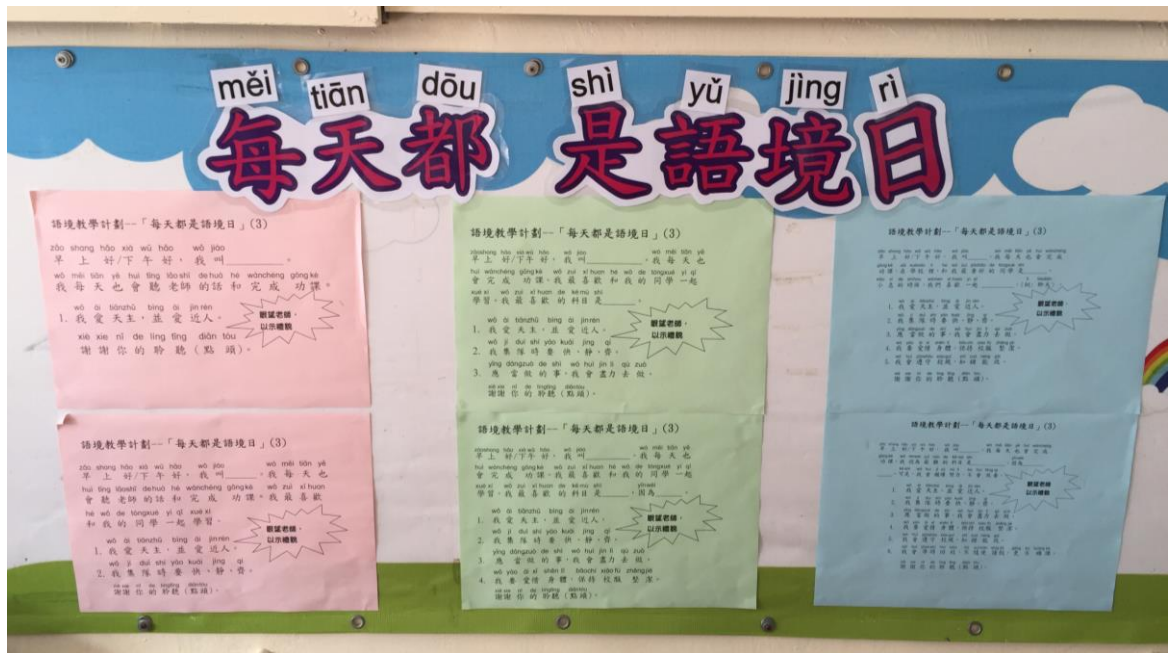 měi tiān dōu shì yǔ jìng rì
每天都 是語境日
語境教學計劃--「每天都是語境日」(3)
zǎo shang hǎo xià wǔ hǎo wǒ jiào
早上好/下午好，我叫________。
wǒ měi tiān yě huì tīng lǎo shī de huà hé wánchéng gōng kè
我每天也會聽老師的話和完成功課。
wǒ ài tiānzhǔ bìng ài jìn rén
1. 我愛天主，並愛近人。
xiè xie nǐ de líng tīng diǎn tóu
謝謝你的聆聽(點頭)。
眼望老師，
以示禮貌
語境教學計劃--「每天都是語境日」(3)
zǎo shang hǎo xià wǔ hǎo wǒ jiào wǒ měi tiān yě
早上好/下午好，我叫________。我每天也
huì tīng lǎoshī de huà hé wánchéng gōng kè wǒ zuì xǐ huan
會聽老師的話和完成功課。我最喜歡
hé wǒ de tóngxué yì qǐ xué xí
和我的同學一起學習。
wǒ ài tiānzhǔ bìng ài jìn rén
1. 我愛天主，並愛近人。
wǒ jí duì shí yào kuài jìng qí
2. 我集隊時要快、靜、齊。
xiè xie nǐ de língtīng diǎntóu
謝謝你的聆聽(點頭)。
眼望老師，
以示禮貌
語境教學計劃--「每天都是語境日」(3)
zǎoshang hǎo xià wǔ hǎo wǒ jiào wǒ měi tiān yě
早上好/下午好，我叫________。我每天也
huì wánchéng gōng kè wǒ zuì xǐ huan hé wǒ de tóngxué yì qǐ
會完成功課。我最喜歡和我的同學一起
xué xí wǒ zuì xǐ huan de kē mù shì
學習。我最喜歡的科目是______。
wǒ ài tiānzhǔ bìng ài jìn rén
1. 我愛天主，並愛近人。
wǒ jí duì shí yào kuài jìng qí
2. 我集隊時要快、靜、齊。
yīng dāngzuò de shì wǒ huì jìn lì qù zuò
3. 應當做的事，我會盡力去做。
xiè xie nǐ de língtīng diǎntóu
謝謝你的聆聽(點頭)。
眼望老師，
以示禮貌
語境教學計劃--「每天都是語境日」(3)
zǎoshang hǎo xià wǔ hǎo wǒ jiào wǒ měi tiān yě
早上好/下午好，我叫________。我每天也
huì wánchéng gōng kè wǒ zuì xǐ huan hé wǒ de tóngxué yì qǐ
會完成功課。我最喜歡和我的同學一起
xué xí wǒ zuì xǐ huan de kē mù shì yīnwèi
學習。我最喜歡的科目是______，因為______。
wǒ ài tiānzhǔ bìng ài jìn rén
1. 我愛天主，並愛近人。
wǒ jí duì shí yào kuài jìng qí
2. 我集隊時要快、靜、齊。
yīng dāngzuò de shì wǒ huì jìn lì qù zuò
3. 應當做的事，我會盡力去做。
wǒ yào ài xī shēn tǐ bǎochí xiào fú zhěngjié
4. 我要愛惜身體，保持校服整潔。
xiè xie nǐ de língtīng diǎntóu
謝謝你的聆聽(點頭)。
眼望老師，
以示禮貌
語境教學計劃--「每天都是語境日」(3)
早上好/下午好，我叫
我每天也會完成
1. 我愛天主，並愛近人。
2. 我集隊時要快、靜、齊。
4. 我要愛惜身體，保持校服整潔。
謝謝你的聆聽(點頭)。
眼望老師，
以示禮貌
語境教學計劃--「每天都是語境日」(3)
早上好/下午好，我叫
我每天也會完成
眼望老師，
以示禮貌